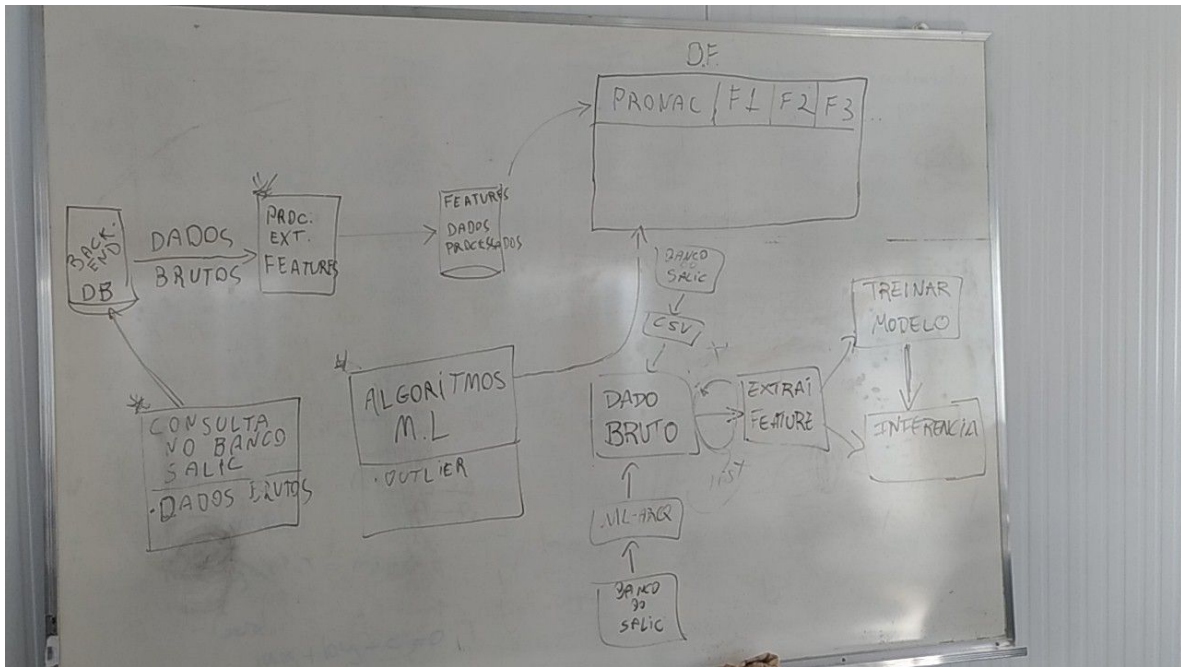 D.F.
PRONAC F1 F2 F3
BACK.
END
DB
DADOS
BRUTOS
PROC.
EXT.
FEATURES
FEATURES
DADOS
PROCESSADOS
CONSULTA
NO BANCO
SALIC
.DADOS BRUTOS
ALGORITMOS
M.L
.OUTLIER
BANCO
DO
SALIC
CSV
DADO
BRUTO
EXTRAI
FEATURE
TREINAR
MODELO
INFERENCIA
BANCO
DO
SALIC